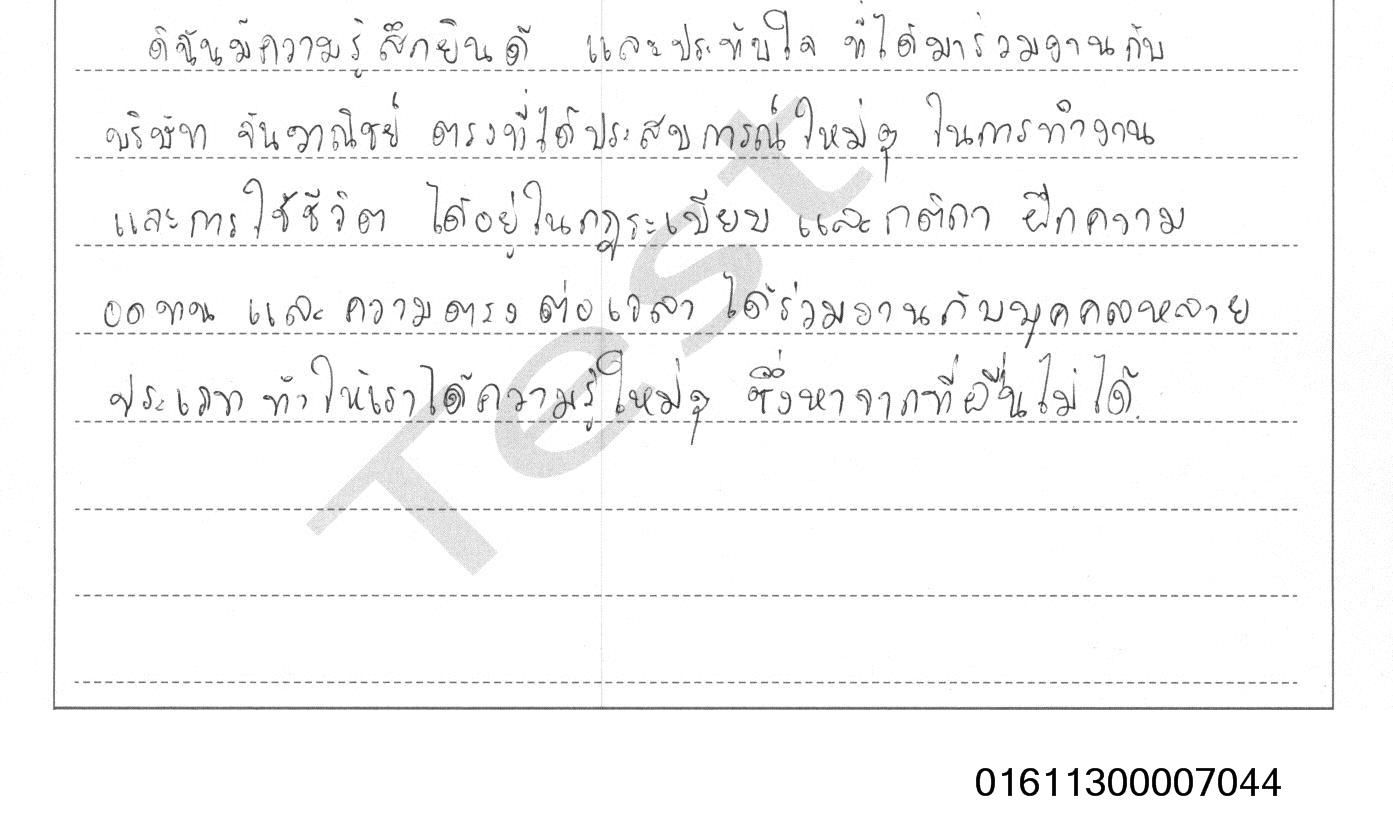 ดิฉันมีความรู้สึกยินดี และประทับใจ ที่ได้มาร่วมงานกับ
บริษัท จันวาณิชย์ ตรงที่ได้ประสบการณ์ใหม่ๆ ในการทำงาน
และการใช้ชีวิต ได้อยู่ในกฎระเบียบ และกติกา ฝึกความ
อดทน และความตรงต่อเวลา ได้ร่วมงานกับบุคคลหลาย
ประเภท ทำให้เราได้ความรู้ใหม่ๆ ซึ่งหาจากที่อื่นไม่ได้.
Test
01611300007044